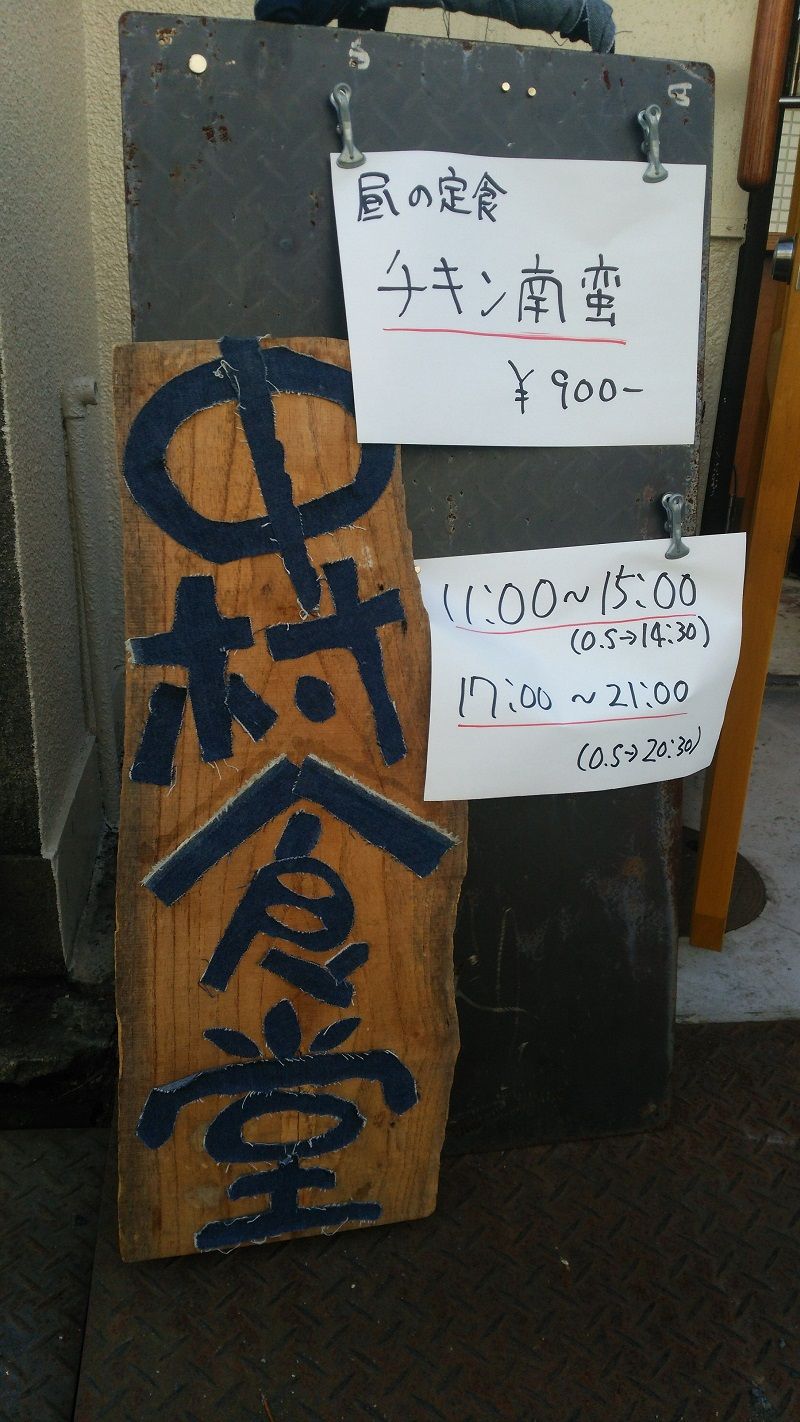 昼の定食
チキン南蛮
¥900-
11:00～15:00
(O.S→14:30)
17:00～21:00
(O.S→20:30)
中村食堂